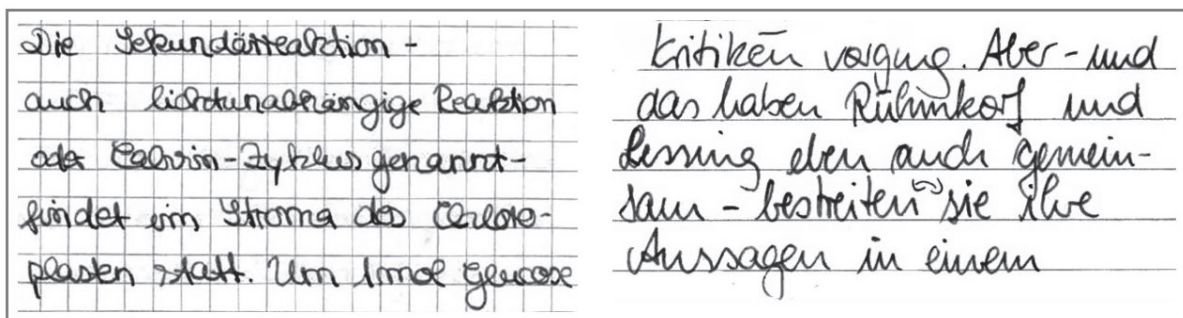 Die Sekundärreaktion -
auch lichtunabhängige Reaktion
oder Calvin-Zyklus genannt -
findet im Stroma des Chloro-
plasten statt. Um 1mol Glucose
Kritiken vorging. Aber - und
das haben Rühmkorf und
Lessing eben auch gemein-
sam - bestreiten sie ihre
Aussagen in einem